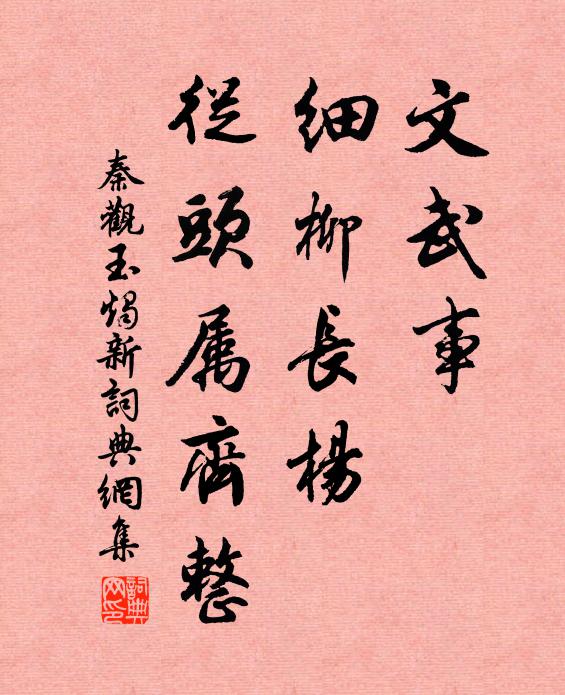 文武事
細柳長楊
從頭属齊整
秦觀玉燭新詞典網集
詞典网印